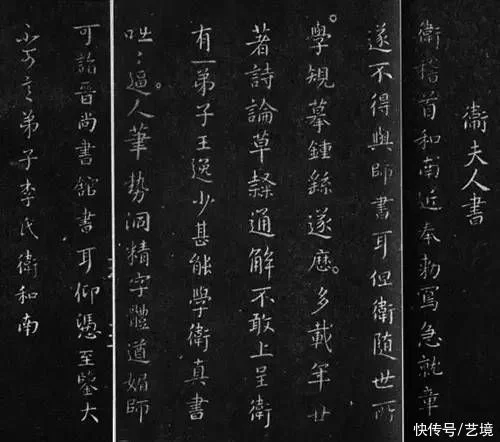 衛夫人書
衛稽首和南近奉勅寫急就章
遂不得與師書耳但衛隨世所
學規摹鍾繇遂歷多載年廿
著詩論草隸通解不敢上呈衛
有一弟子王逸少甚能學衛真書
咄〻逼人筆勢洞精字體遒媚師
可詣晉尚書館書耳仰憑至鑒大
不可言弟子李氏衛和南
快传号/艺境